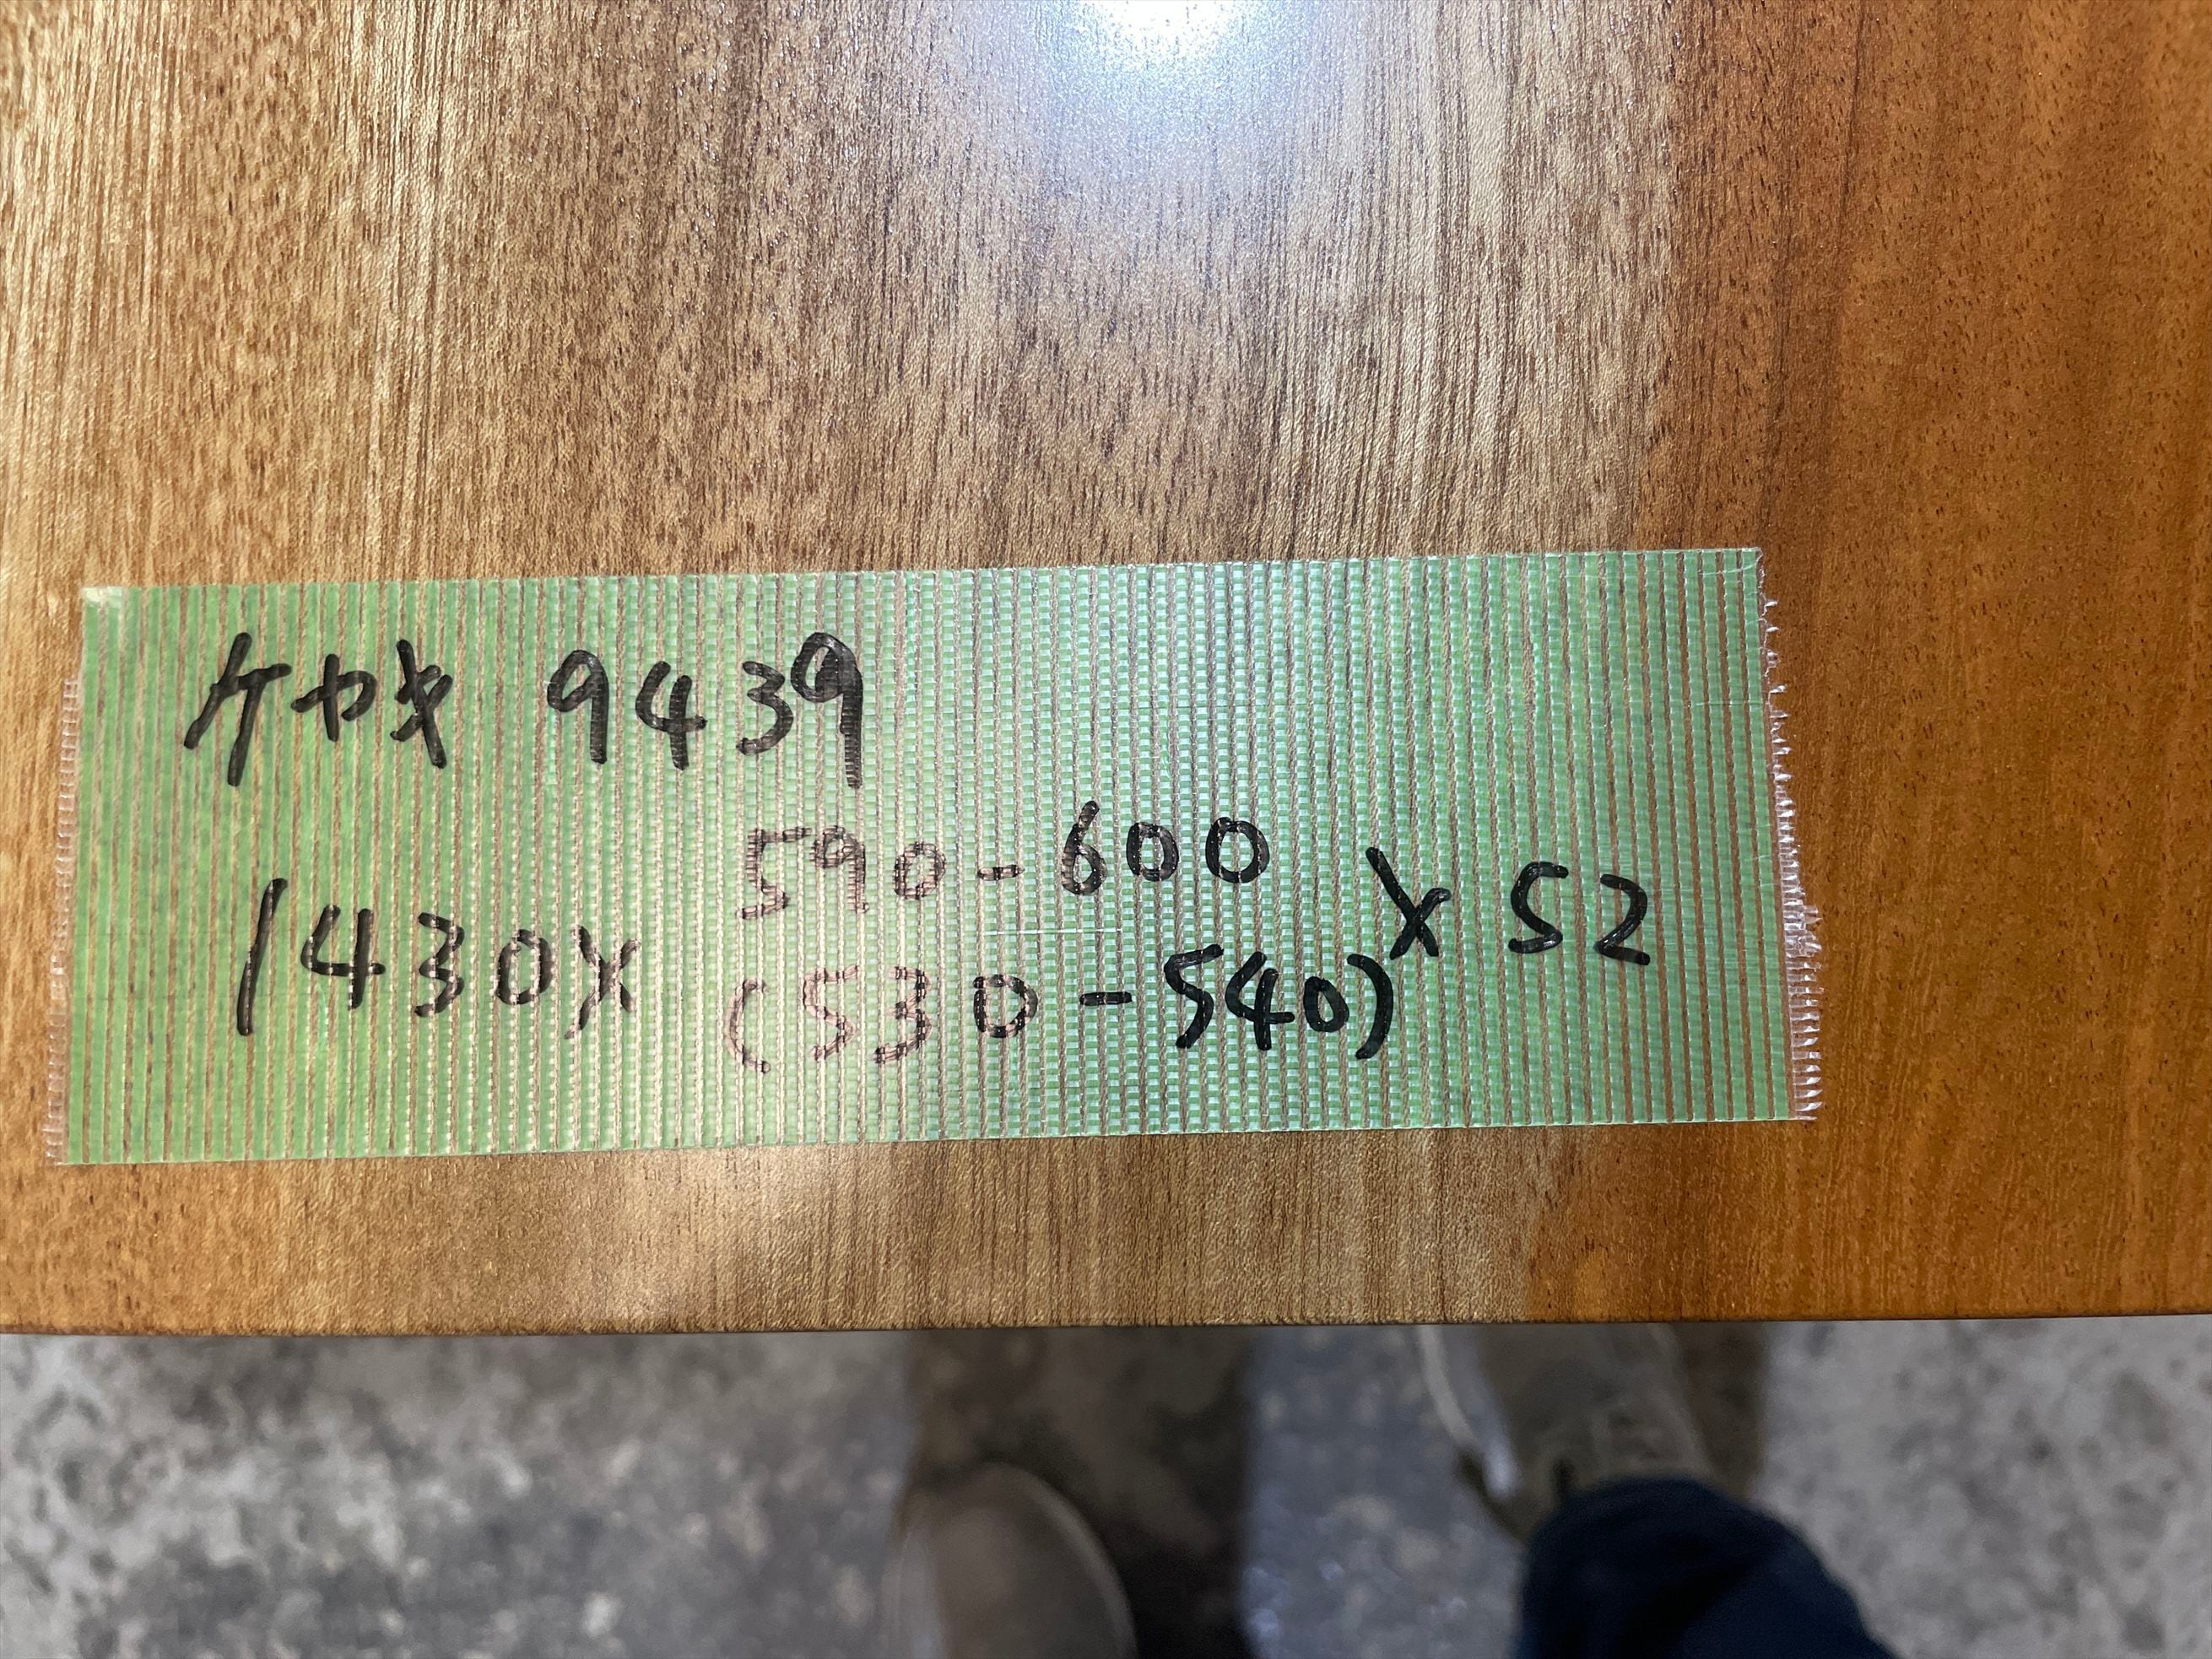 ケヤキ 9439
590-600
1430× ×52
(530-540)